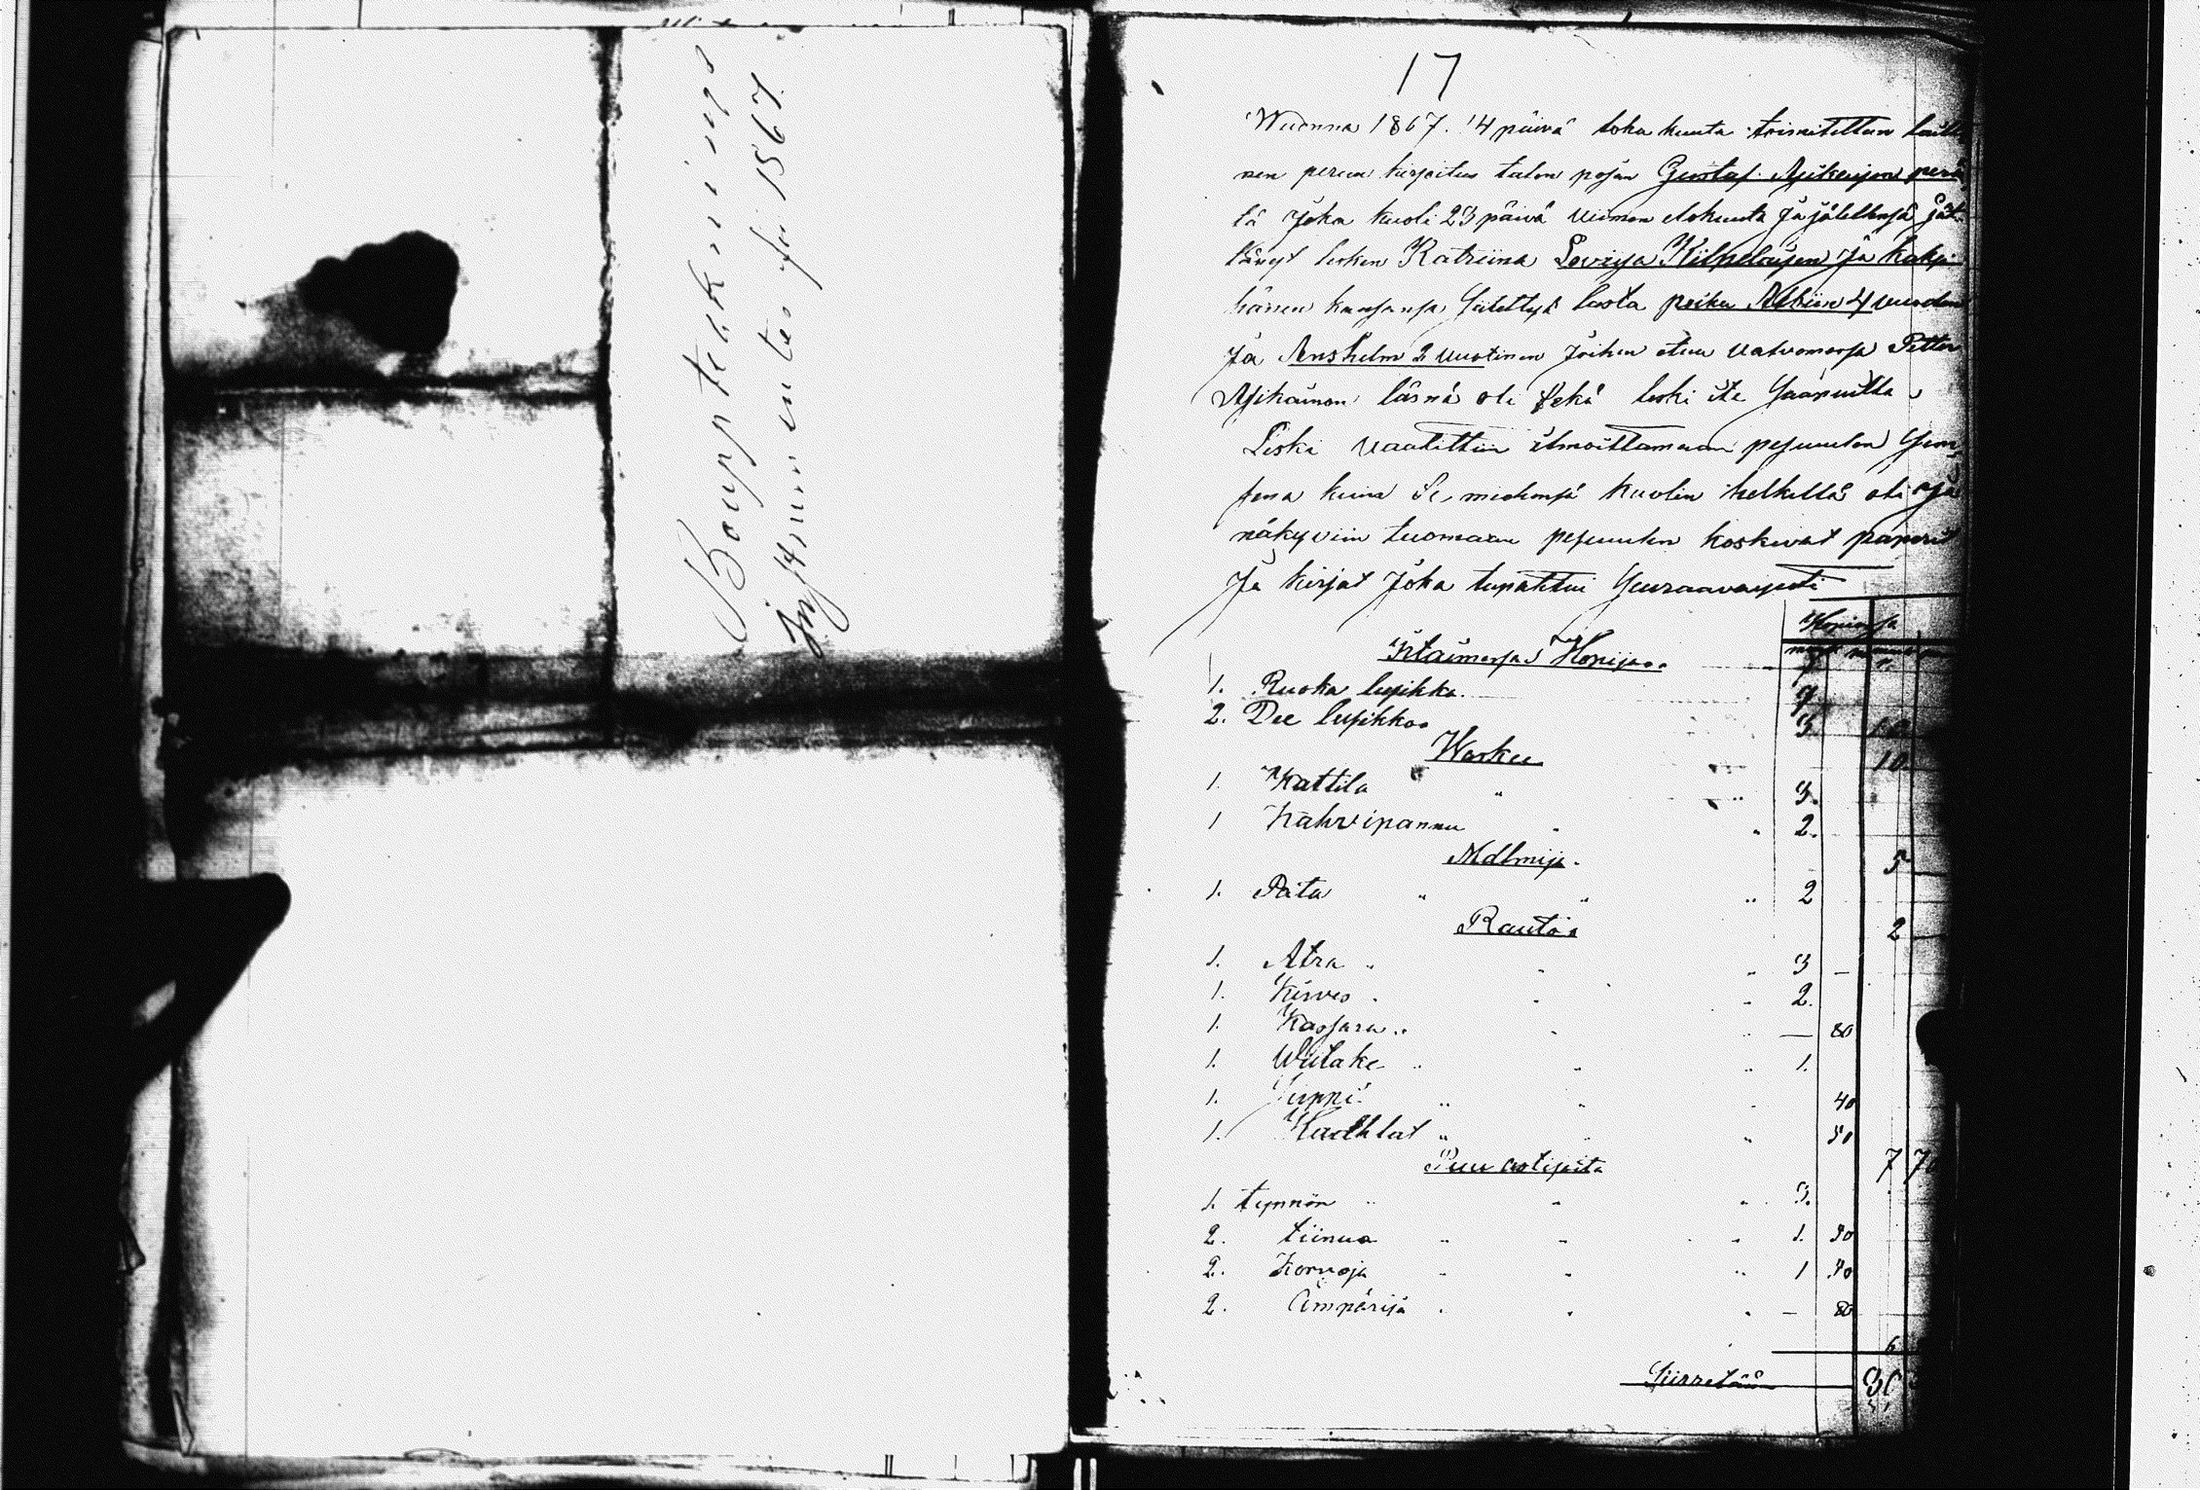 Bouppteknings
Instrumenter för 1867.
17
Wuonna 1867. 14 päivä loka kuuta toimitettiin lailli
nen perun kirjoitus talon pojan Gustaf Asikaisen perä
tä Joka kuoli 23 päivä viimen elokuuta Ja jälellensä jät
tänyt lesken Katriina Lovisa Kilpeläisen Ja kaksi
hänen kansansa siitettyä lasta poika Albiin 4 vuoden
Ja Anshelm 2 vuotinen Joihen etua valvomassa Petter
Asikainen läsnä oli sekä leski ite saapuilla
Leski vaadittiin ilmoittamaan pesuuden sem
sena kuin se miehensä kuolin hetkellä oli Ja
näkyviin tuomaan pesuuden koskevat paperit
Ja kirjat Joka tapahtui seuraavaisesti
Itäimessä Hopijaa
1. Ruoka lusikka 7
2. Dee lusikkaa 3 10
Waskee 10
1. Kattila 3.
1 Kahvipannu 2.
Malmija 5
1. Pata 2
Rautaa 2
1. Atra 3 -
1. Kirves 2.
1. Kassara - 80
1. Wiitake 1.
1. Sirppi 40
1. Kaethlat 50
Puu astijoita 7 70
1. tynnön 3.
2. tiinua 1. 50
2. Korvoja 1 40
2. Ämpärijä - 80
6
Siirretään 30